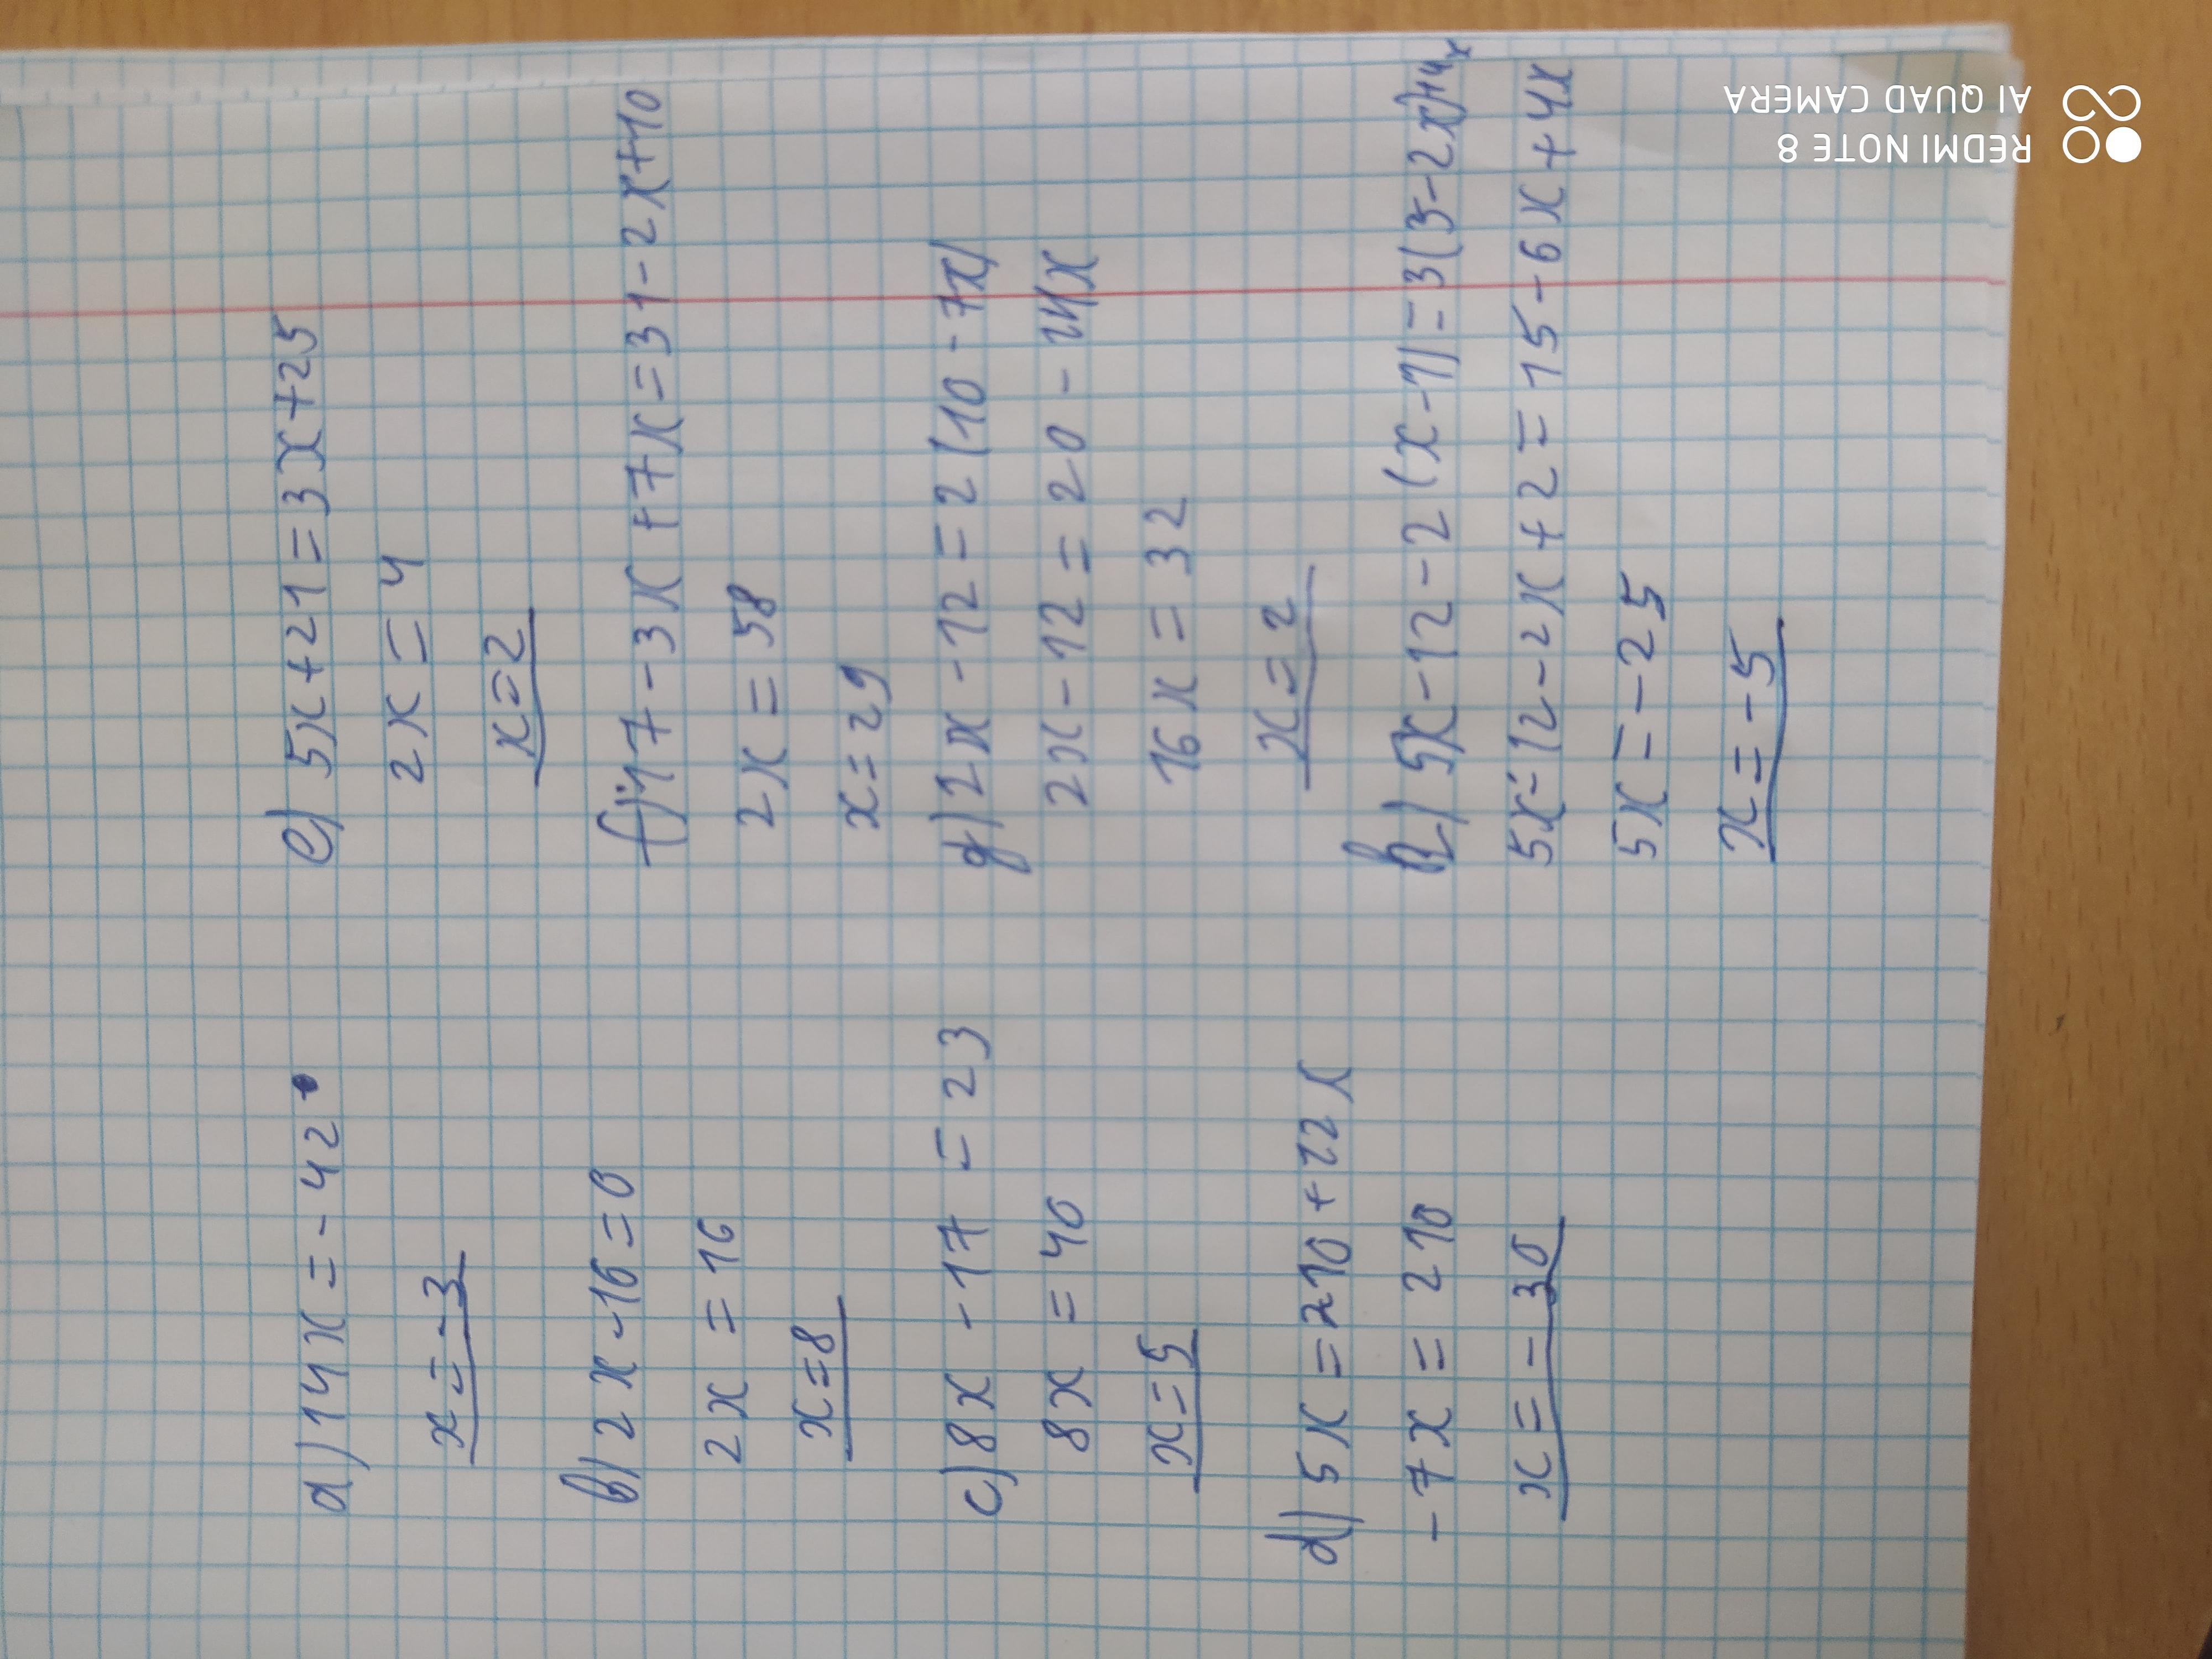 a) 14x = -42
x = -3
b) 2x - 16 = 0
2x = 16
x = 8
c) 8x - 17 = 23
8x = 40
x = 5
d) 5x = 210 + 22x
-7x = 210
x = -30
e) 5x + 21 = 3x + 25
2x = 4
x = 2
f) 17 - 3x + 7x = 31 - 2x + 10
2x = 58
x = 29
g) 2x - 12 = 2(10 - 7x)
2x - 12 = 20 - 14x
16x = 32
x = 2
h) 5x - 12 - 2(x - 1) = 3(5 - 2x) + 4x
5x - 12 - 2x + 2 = 15 - 6x + 4x
5x = -25
x = -5
REDMI NOTE 8
AI QUAD CAMERA